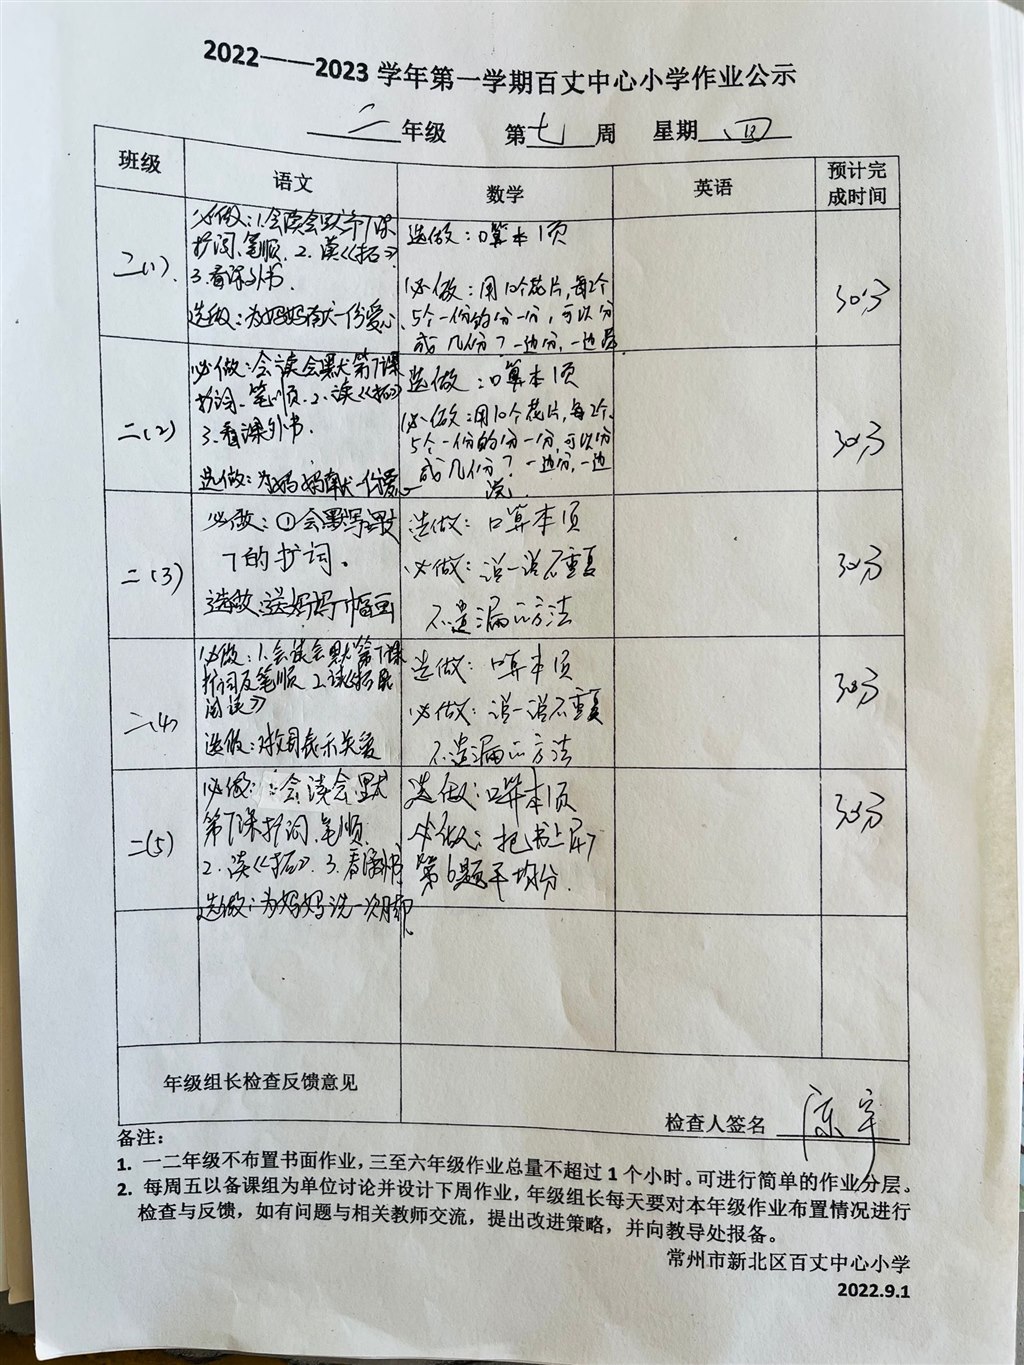 2022——2023 学年第一学期百丈中心小学作业公示
二 年级 第 七 周 星期 四
班级 语文 数学 英语 预计完
成时间
二(1)
必做:1.会读会默第7课
扩词、笔顺. 2.读《拓》
3.看课外书.
选做:为妈妈献一份爱心
选做:口算本1页
必做:用10个花片,每2个
、5个一份的分一分,可以分
成几份?一边分,一边说
30分
二(2)
必做:会读会默第7课
扩词、笔顺.2.读《拓》
3.看课外书.
选做:为妈妈献一份爱心
选做:口算本1页
必做:用10个花片,每2个、
5个一份的分一分,可以分
成几份?一边分,一边
说.
30分
二(3)
必做:①会默写课文
7的扩词。
选做:送妈妈一幅画
选做:口算本1页
必做:说一说不重复
不遗漏的方法
30分
二(4)
必做:1.会读会默第7课
扩词及笔顺 2.读《拓展
阅读》
选做:对 表示关爱
选做:口算本1页
必做:说一说不重复
不遗漏的方法
30分
二(5)
必做:1.会读会默
第7课扩词、笔顺.
2.读《拓》. 3.看课外书
选做:为妈妈洗一次脚
选做:口算本1页
必做:把书上P47
第6题平均分.
30分
年级组长检查反馈意见
检查人签名 陈宇
备注:
1. 一二年级不布置书面作业,三至六年级作业总量不超过 1 个小时。可进行简单的作业分层。
2. 每周五以备课组为单位讨论并设计下周作业,年级组长每天要对本年级作业布置情况进行
检查与反馈,如有问题与相关教师交流,提出改进策略,并向教导处报备。
常州市新北区百丈中心小学
2022.9.1